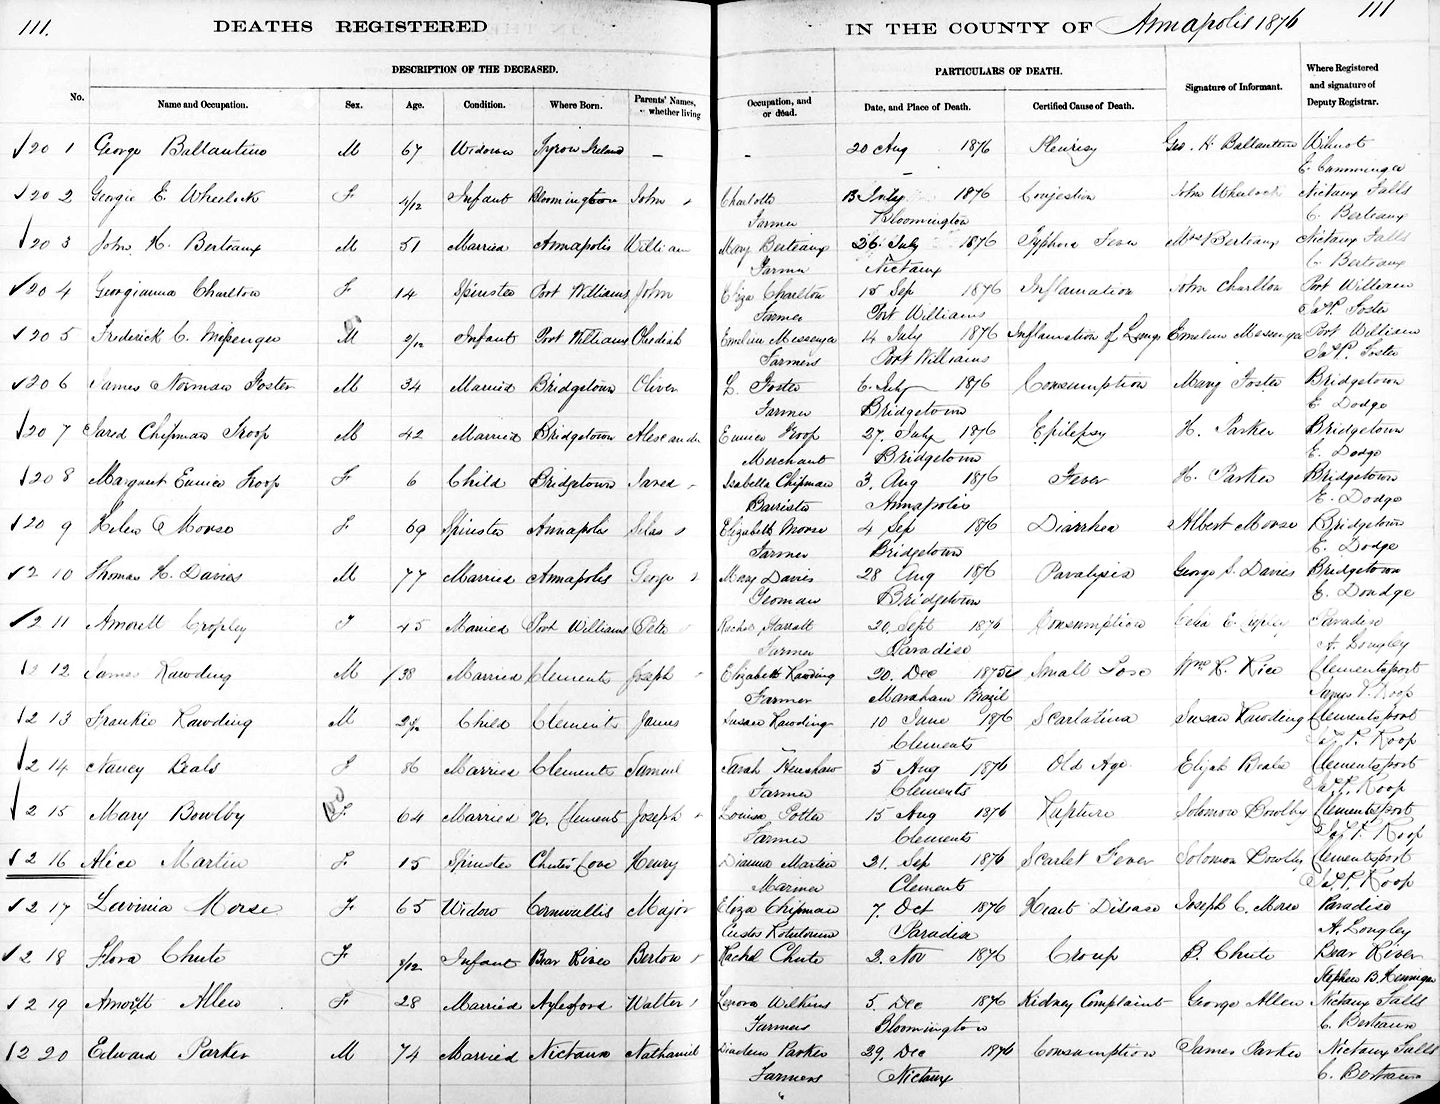 111. DEATHS REGISTERED IN THE COUNTY OF Annapolis 1876 111
DESCRIPTION OF THE DECEASED. PARTICULARS OF DEATH.
No. Name and Occupation. Sex. Age. Condition. Where Born. Parents' Names, whether living Occupation, and or dead. Date, and Place of Death. Certified Cause of Death. Signature of Informant. Where Registered and signature of Deputy Registrar.
20 1 George Ballantine M 67 Widower Tyron Ireland – – 20 Aug 1876 Pleurisy Geo. H. Ballantine Wilmot
–
20 2 Georgie E. Wheelock F 4/12 Infant Bloomington John Charlotte 13 July 1876 Conjestion John Wheelock Nictaux Falls
Farmer Bloomington C. Berteaux
20 3 John H. Berteaux M 51 Married Annapolis William Mary Berteaux 26 July 1876 Typhoid Fever Mrs Berteaux Nictaux Falls
Farmer Nictaux C. Berteaux
20 4 Georgianna Charlton F 14 Spinster Port Williams John Eliza Charlton 15 Sep 1876 Inflamation John Charlton Port William
Farmer Port Williams Foster
20 5 Frederick C. Messenger M 2/12 Infant Port Williams Obediah Emeline Messenger 14 July 1876 Inflamation of Lungs Emeline Messenger Port William
Farmers Port Williams Foster
20 6 James Norman Foster M 34 Married Bridgetown Oliver L. Foster 6. July 1876 Consumption Mary Foster Bridgetown
Farmer Bridgetown E. Dodge
20 7 Jared Chipman Troop M 42 Married Bridgetown Alexander Eunice Troop 27. July 1876 Epilepsy H. Parker Bridgetown
Merchant Bridgetown E. Dodge
20 8 Margaret Eunice Troop F 6 Child Bridgetown Jared Isabella Chipman 3. Aug 1876 Fever H. Parker Bridgetown
Barrister Annapolis E. Dodge
20 9 Helen A Morse F 69 Spinster Annapolis Silas Elizabeth Morse 4 Sep 1876 Diarrhea Albert Morse Bridgetown
Farmer Bridgetown E. Dodge
2 10 Thomas H. Davies M 77 Married Annapolis George Mary Davies 28 Aug 1876 Paralysis George S. Davies Bridgetown
Yeoman Bridgetown E. Dondge
2 11 Amorett Cropley F 45 Married Port Williams Peter Rachel 20. Sept 1876 Consumption Paradise
Farmer Paradise A. Longley
2 12 James Rawding M 38 Married Clements Joseph Elizabeth Rawding 20. Dec 1875 Small Pose Wm. R. Rice Clementsport
Farmer Maraham Brazil James P. Roop
2 13 Frankie Rawding M Child Clements James Susan Rawding 10 June 1876 Scarlatina Susan Rawding Clementsport
Clements Jas. P. Roop
2 14 Nancy Beals F 86 Married Clements Samuel Sarah Henshaw 5 Aug 1876 Old Age Elijah Beals Clementsport
Farmer Clements Jas. P. Roop
2 15 Mary Bowlby F 64 Married N. Clement Joseph Louisa Potter 15 Aug 1876 Rapture Solomon Bowlby Clementsport
Farmer Clements Jas. P. Roop
2 16 Alice Martin F 15 Spinster Chute's Cove Henry Dianna Martin 21. Sep 1876 Scarlet Fever Solomon Bowlby Clementsport
Mariner Clements Jas. P. Roop
2 17 Lavinia Morse F 65 Widow Cornwallis Major Eliza Chipman 7. Oct 1876 Heart Disease Joseph C. Morse Paradise
Custos Rotulorum Paradise A. Longley
2 18 Flora Chute F 8/12 Infant Bear River Berton Rachel Chute 2. Nov 1876 Croup B. Chute Bear River
Stephen B.
2 19 Amorett Allen F 28 Married Aylesford Walter Lenora Wilkins 5. Dec 1876 Kidney Complaint George Allen Nictaux Falls
Farmers Bloomington C. Berteaux
2 20 Edward Parker M 74 Married Nictaux Nathaniel Parker 29. Dec 1876 Consumption James Parker Nictaux Falls
Farmers Nictaux C. Berteaux